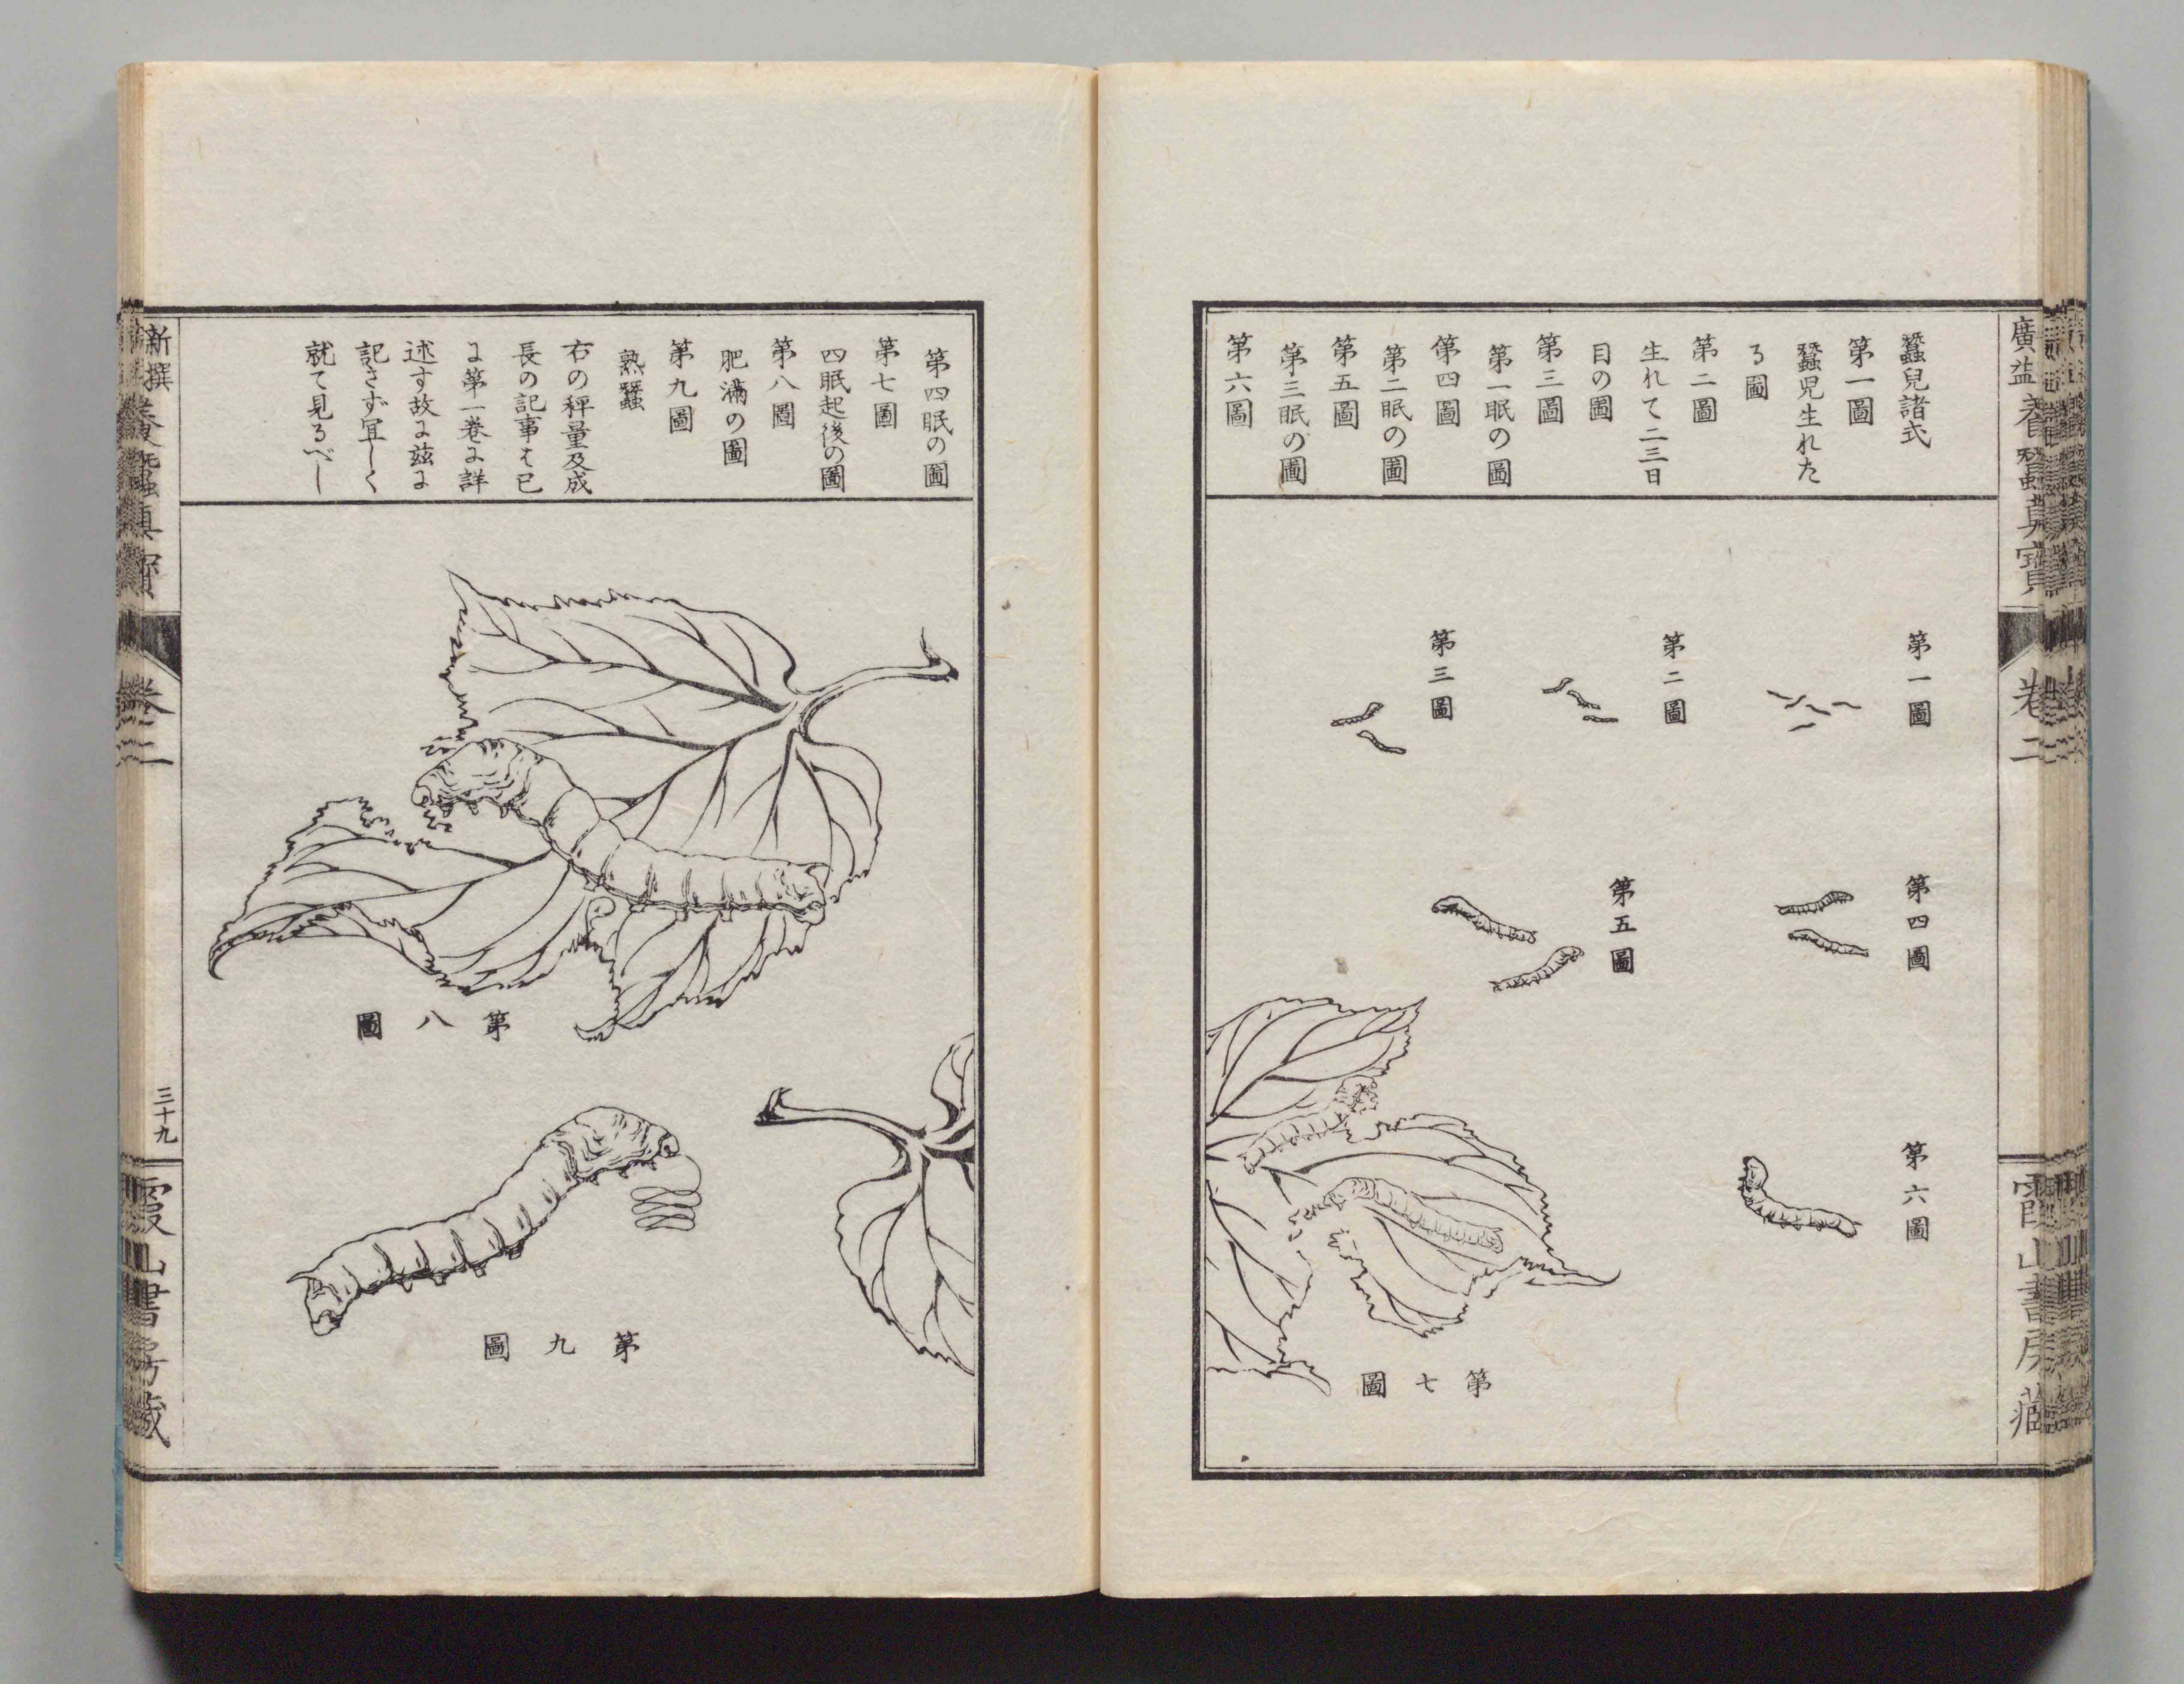 廣益養蠶真寶
卷二
霞山書房藏
蠶兒諸式
第一圖
蠶児生れた
る圖
第二圖
生れて二三日
目の圖
第三圖
第一眠の圖
第四圖
第二眠の圖
第五圖
第三眠の圖
第六圖
第一圖
第二圖
第三圖
第四圖
第五圖
第六圖
第七圖
第四眠の圖
第七圖
四眠起後の圖
第八圖
肥滿の圖
第九圖
熟蠶
右の秤量及成
長の記事は已
に第一卷に詳
述す故に茲に
記さず宜しく
就て見るべし
第八圖
第九圖
新撰養蠶真寶
卷二
三十九
霞山書房藏